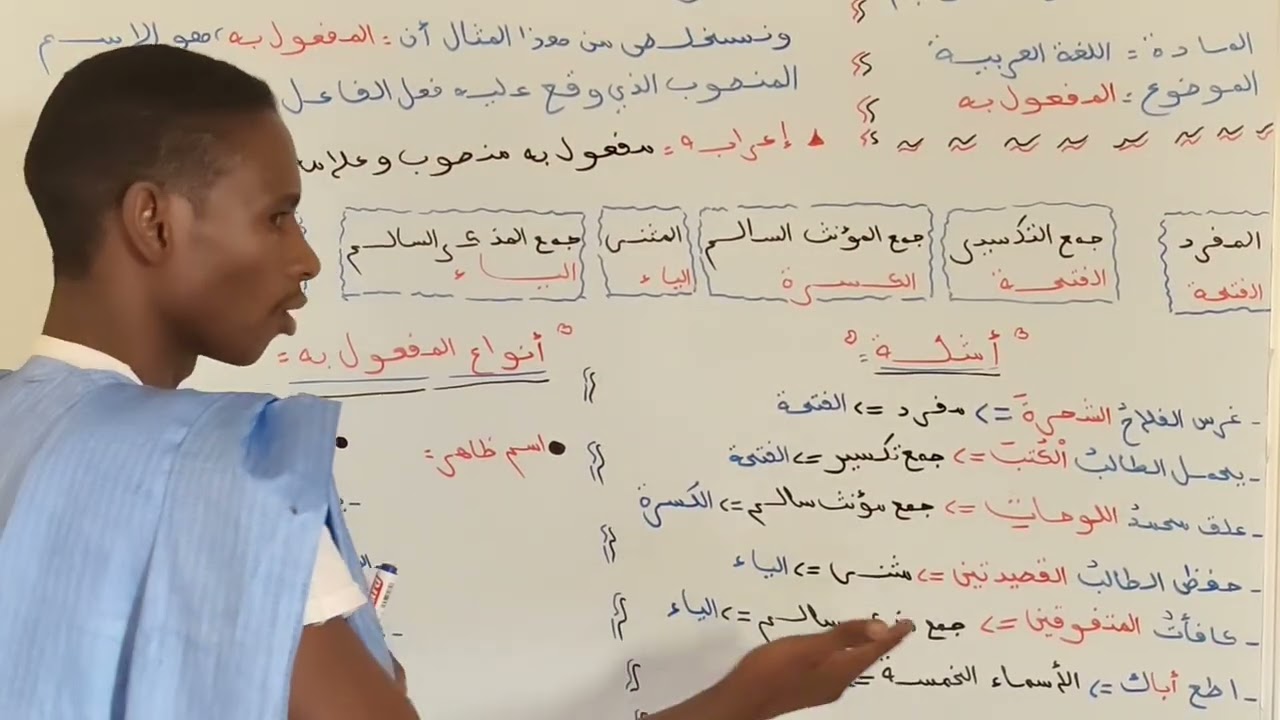 المادة = اللغة العربية
الموضوع = المفعول به
ونستخلص من هذا المثال أن = المفعول به، هو الاسم
المنصوب الذي وقع عليه فعل الفاعل
إعرابه = مفعول به منصوب وعلام
المفرد
الفتحة
جمع التكسير
الفتحة
جمع المؤنث السالم
الكسرة
المثنى
الياء
جمع المذكر السالم
اليــاء
أمثلة =
- غرس الفلاحُ الشجرةَ => مفرد => الفتحة
- يحمل الطالبُ الْكُتبَ => جمع تكسير => الفتحة
- علق محمدُ اللوحاتِ => جمع مؤنث سالم => الكسرة
- حفظ الطالبُ القصيدتين => مثنى => الياء
- كافأتُ المتفوقين => جمع سالم => الياء
- اطع أباك => الأسماء الخمسة =>
أنواع المفعول به =
● اسم ظاهر =